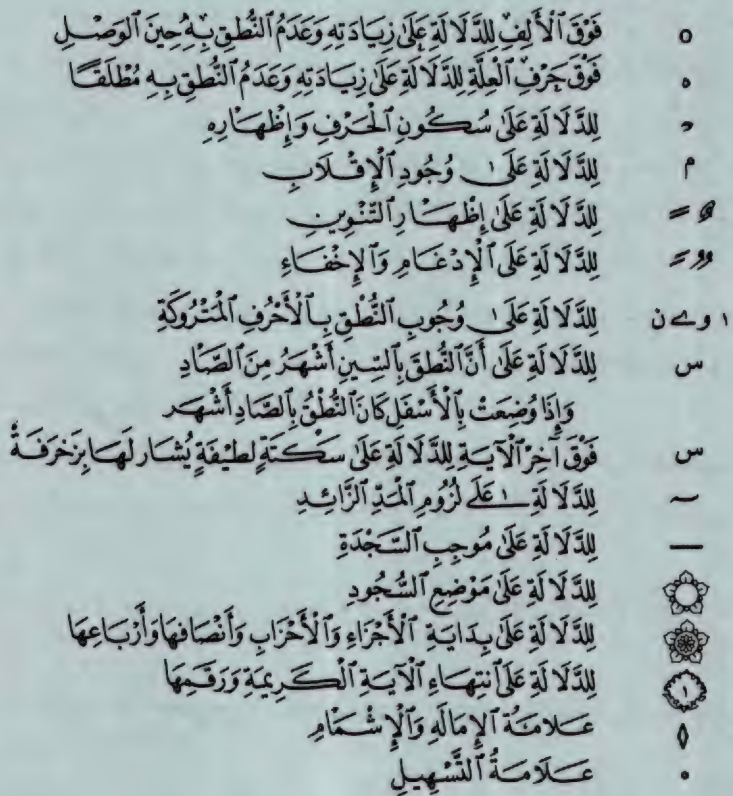 o فَوْقَ ٱلْأَلِفِ لِلدَّلَالَةِ عَلَىٰ زِيَادَتِهِ وَعَدَمُ ٱلنُّطقِ بِهِ حِينَ ٱلوَصْلِ
ه فَوْقَ حَرْفِ ٱلْعِلَّةِ لِلدَّلَالَةِ عَلَىٰ زِيَادَتِهِ وَعَدَمُ ٱلنُّطقِ بِهِ مُطْلَقًا
لِلدَّلَالَةِ عَلَىٰ سُكُونِ ٱلْحَرْفِ وَإِظْهَارِهِ
م لِلدَّلَالَةِ عَلَىٰ وُجُودِ ٱلْإِقْلَابِ
لِلدَّلَالَةِ عَلَىٰ إِظْهَارِ ٱلتَّنْوِينِ
لِلدَّلَالَةِ عَلَىٰ ٱلْإِدْغَامِ وَٱلْإِخْفَاءِ
ا و ے ن لِلدَّلَالَةِ عَلَىٰ وُجُوبِ ٱلنُّطْقِ بِٱلْأَحْرُفِ ٱلْمَتْرُوكَةِ
س لِلدَّلَالَةِ عَلَىٰ أَنَّ ٱلنُّطقَ بِٱلسِّينِ أَشْهَرُ مِنَ ٱلصَّادِ
وَإِذَا وُضِعَتْ بِٱلْأَسْفَلِ كَانَ ٱلنُّطْقُ بِٱلصَّادِ أَشْهَر
س فَوْقَ آخِرِ ٱلْآيَةِ لِلدَّلَالَةِ عَلَىٰ سَكْتَةٍ لَطِيْفَةٍ يُشَار لَهَا بِزَخرَفَةٌ
لِلدَّلَالَةِ عَلَے لُزُومِ ٱلْمَدِّ ٱلزَّائِدِ
لِلدَّلَالَةِ عَلَىٰ مُوجِبِ ٱلسَّجْدَةِ
لِلدَّلَالَةِ عَلَىٰ مَوْضِعِ ٱلسُّجُودِ
لِلدَّلَالَةِ عَلَىٰ بِدَايَةِ ٱلْأَجْزَاءِ وَٱلْأَحْزَابِ وَأَنْصَافِهَا وَأَرْبَاعِهَا
١ لِلدَّلَالَةِ عَلَىٰ ٱنتِهَاءِ ٱلْآيَةِ ٱلْكَرِيمَةِ وَرَقَمِهَا
عَلَامَةُ ٱلإِمَالَهِ وَٱلْإِشْمَامِ
عَلَامَةُ ٱلتَّسْهِيلِ